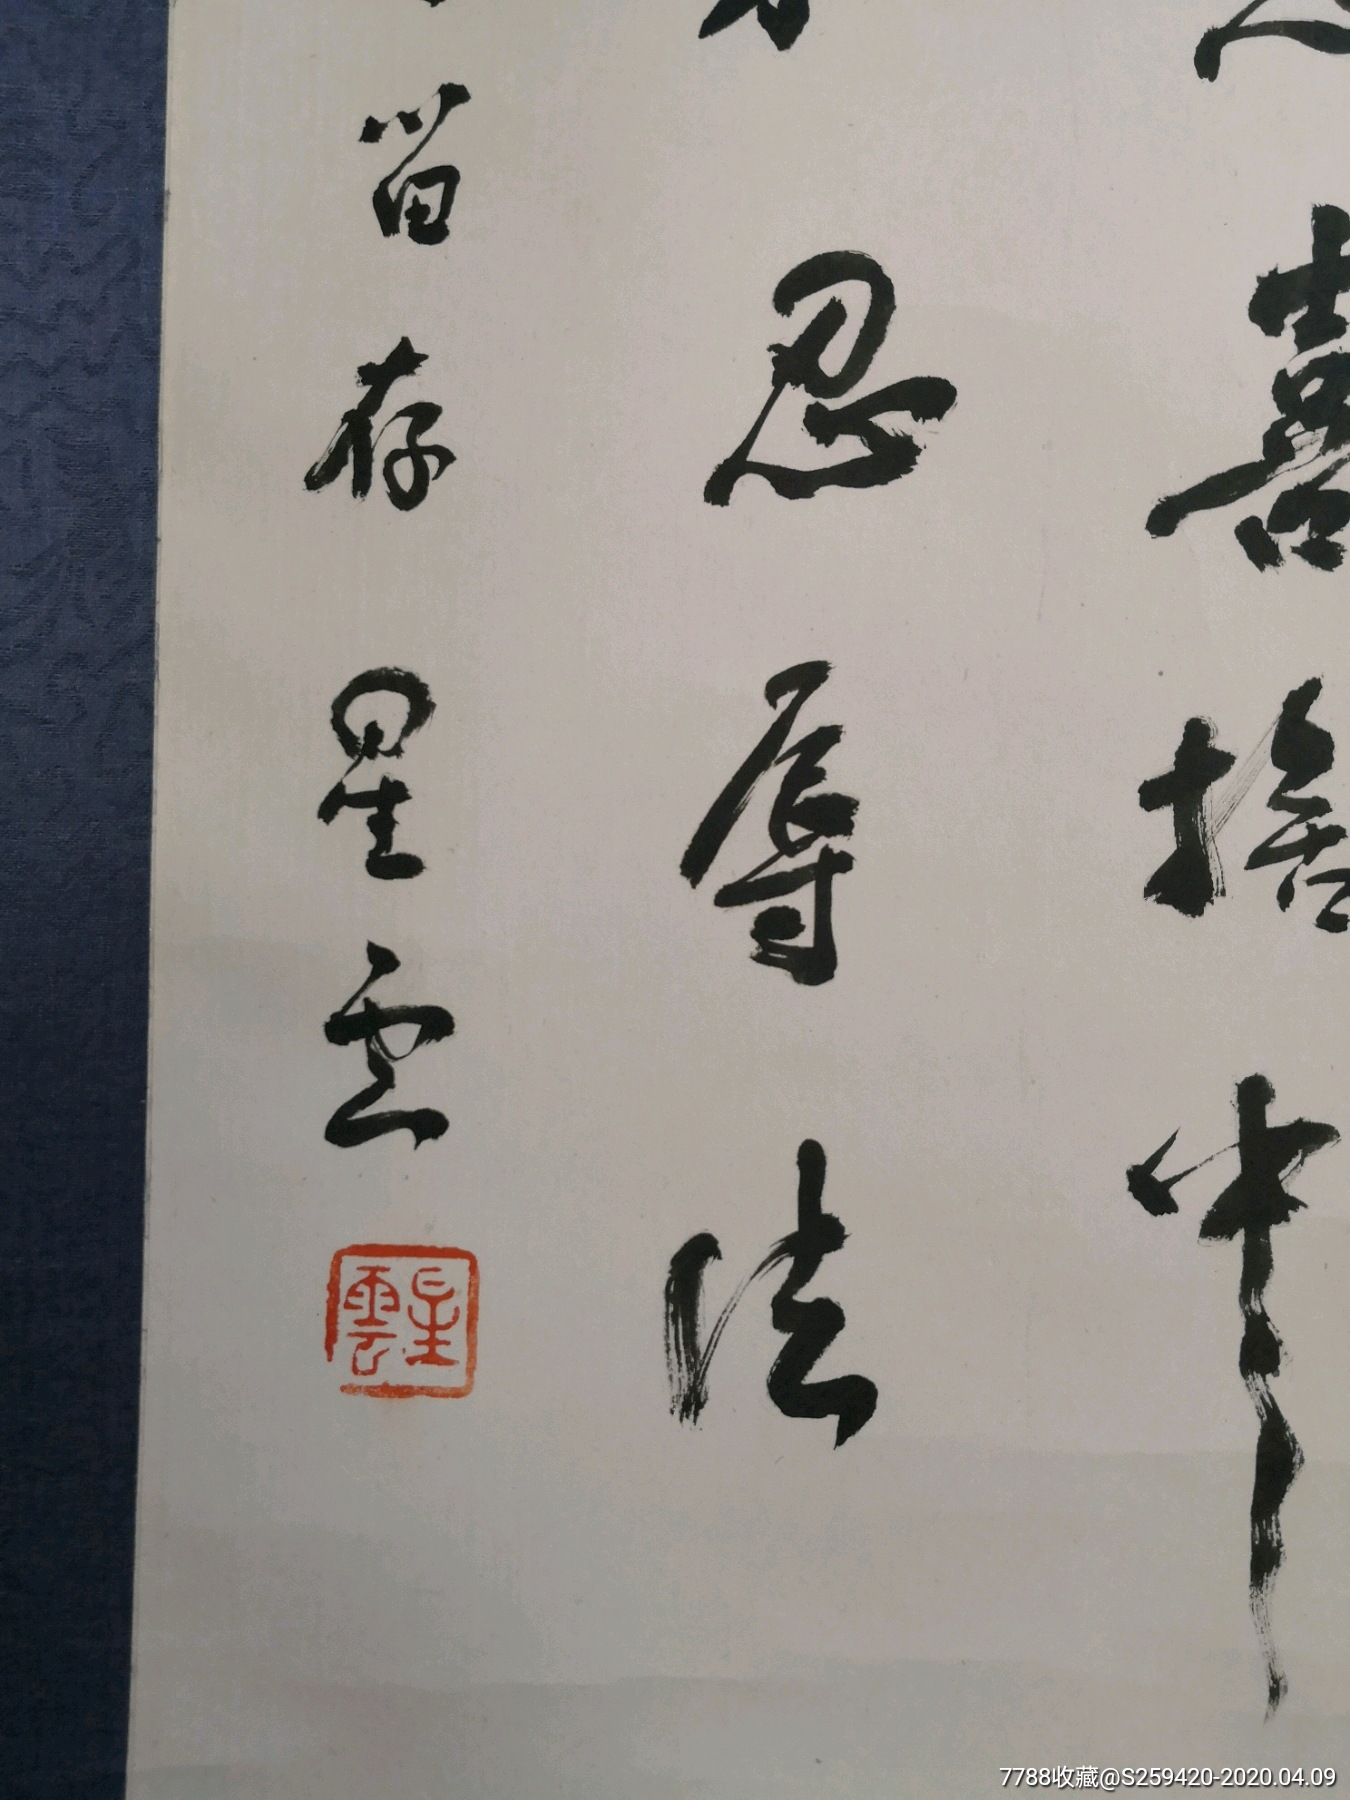 喜捨中
忍辱法
留存 星雲
星雲
7788收藏@S259420-2020.04.09